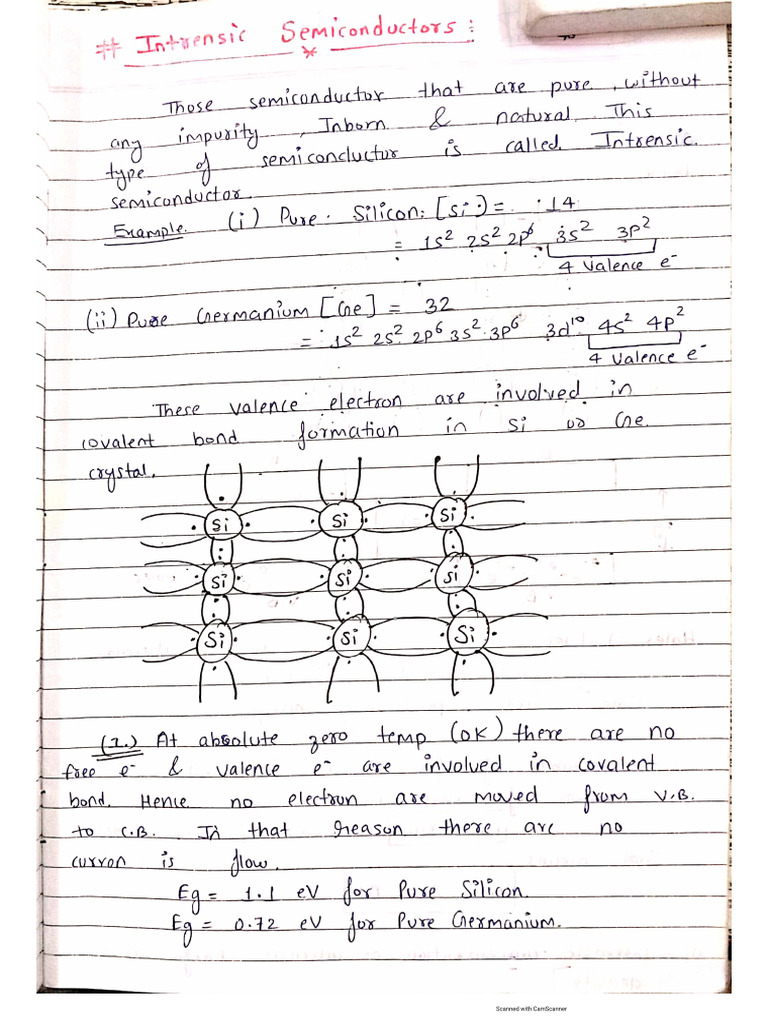 # Intrensic Semiconductors:
Those semiconductor that are pure, without
any impurity, Inborn & natural. This
type of semiconcluctur is called Intrensic.
semiconductor.
Example. (i) Pure. Silicon: [Si:) = .14
= 1s² 2s² 2p⁶ 3s² 3p²
4 valence e⁻
(ii) Pure Germanium [Ge] = 32
= 1s² 2s² 2p⁶ 3s² 3p⁶ 3d¹⁰ 4s² 4p²
4 valence e⁻
These valence electron are involved in
covalent bond formation in Si or Ge
crystal.
Si Si Si
Si Si Si
Si Si Si
(1.) At absolute zero temp (0K) there are no
free e⁻ & valence e⁻ are involved in covalent
bond. Hence no electron are moved from V.B.
to C.B. In that reason there are no
curron is flow.
Eg = 1.1 eV for Pure Silicon.
Eg = 0.72 eV for Pure Germanium.
Scanned with CamScanner